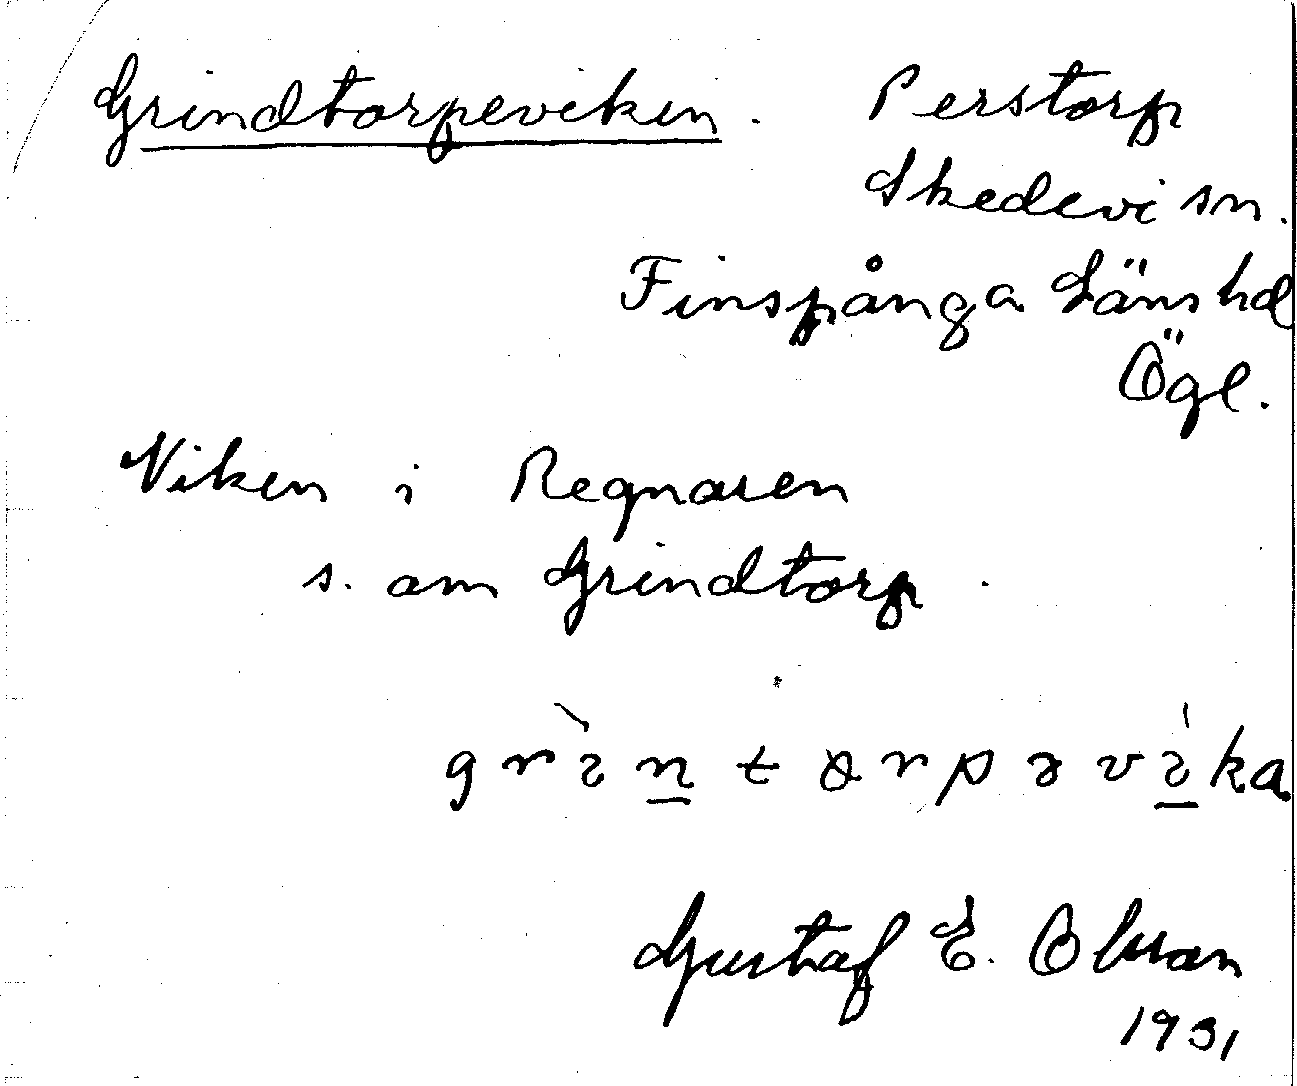 Grindtorpeviken. Perstorp
Skedevi sn.
Finspånga Läns hd
Ögl.
Viken i Regnaren
s. om Grindtorp.
Gustaf E. Olsson
1931